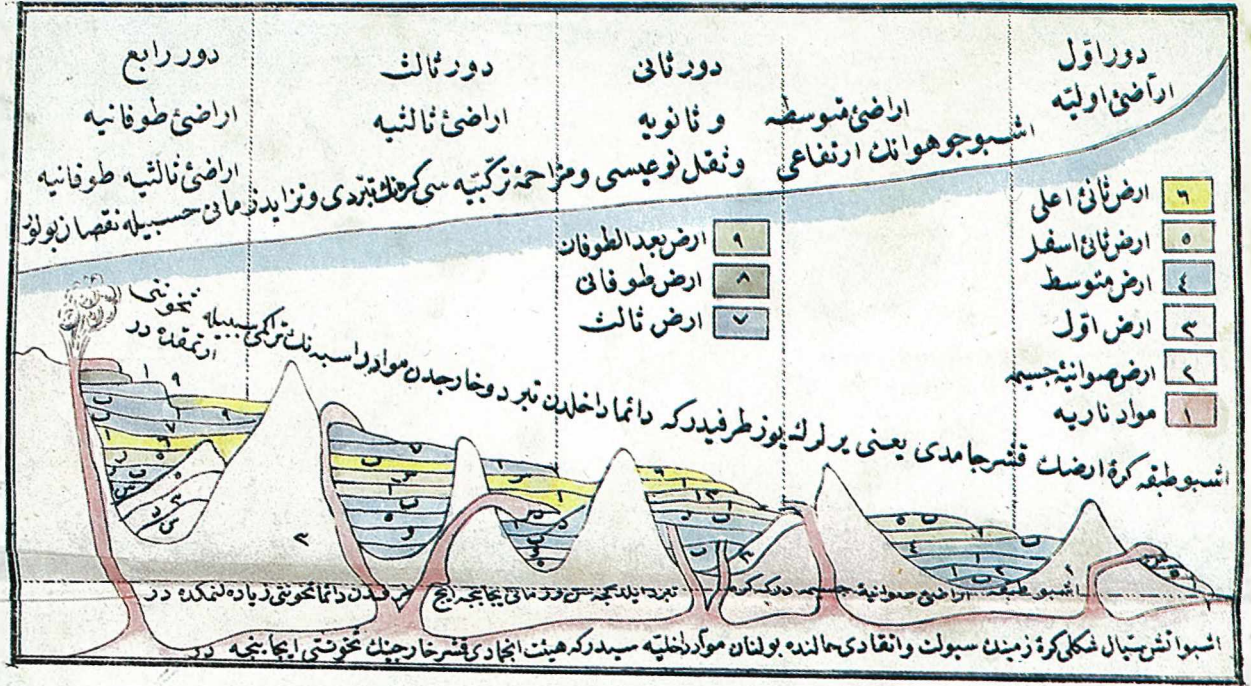 دور اوّل
اراضئ اوليّه
اراضئ متوسطه
دور ثانى
و ثانويه
دور ثالث
اراضئ ثالثيه
دور رابع
اراضئ طوفانيه
اراضئ ثالثيه طوفانيه
اشبو جو هوانك ارتفاعى
و ثقل نوعيسى و مزاحمۀ تركبيّه سى كره‌نك تبردى و تزايد زمانى حسبيله نقصان بولور
٦ ارض ثانئ اعلى
٥ ارض ثانئ اسفل
٤ ارض متوسط
٣ ارض اوّل
٢ ارض صوانيۀ جسيمه
١ مواد ناريه
٩ ارض بعد الطوفان
٨ ارض طوفانى
٧ ارض ثالث
اشبو طبقه كرۀ ارضك قشر جامدى يعنى يرلرك يوز طرفيدركه دائما داخلدن تبرد و خارجدن مواد راسبه‌نك تراكمى سببيله ثخونتى
ارتمقده در
اشبو طبقه اراضئ صوانيۀ جسيمه دركه كره دائما ثخونتى زياده لنمكده در
اشبو آتش سيال شكلى كرۀ زمينك سيولت و اتقادى حالنده بولنان مواد داخليه سيدركه هيئت انجمادى قشر خارجينك ثخونتى ايجابنجه در